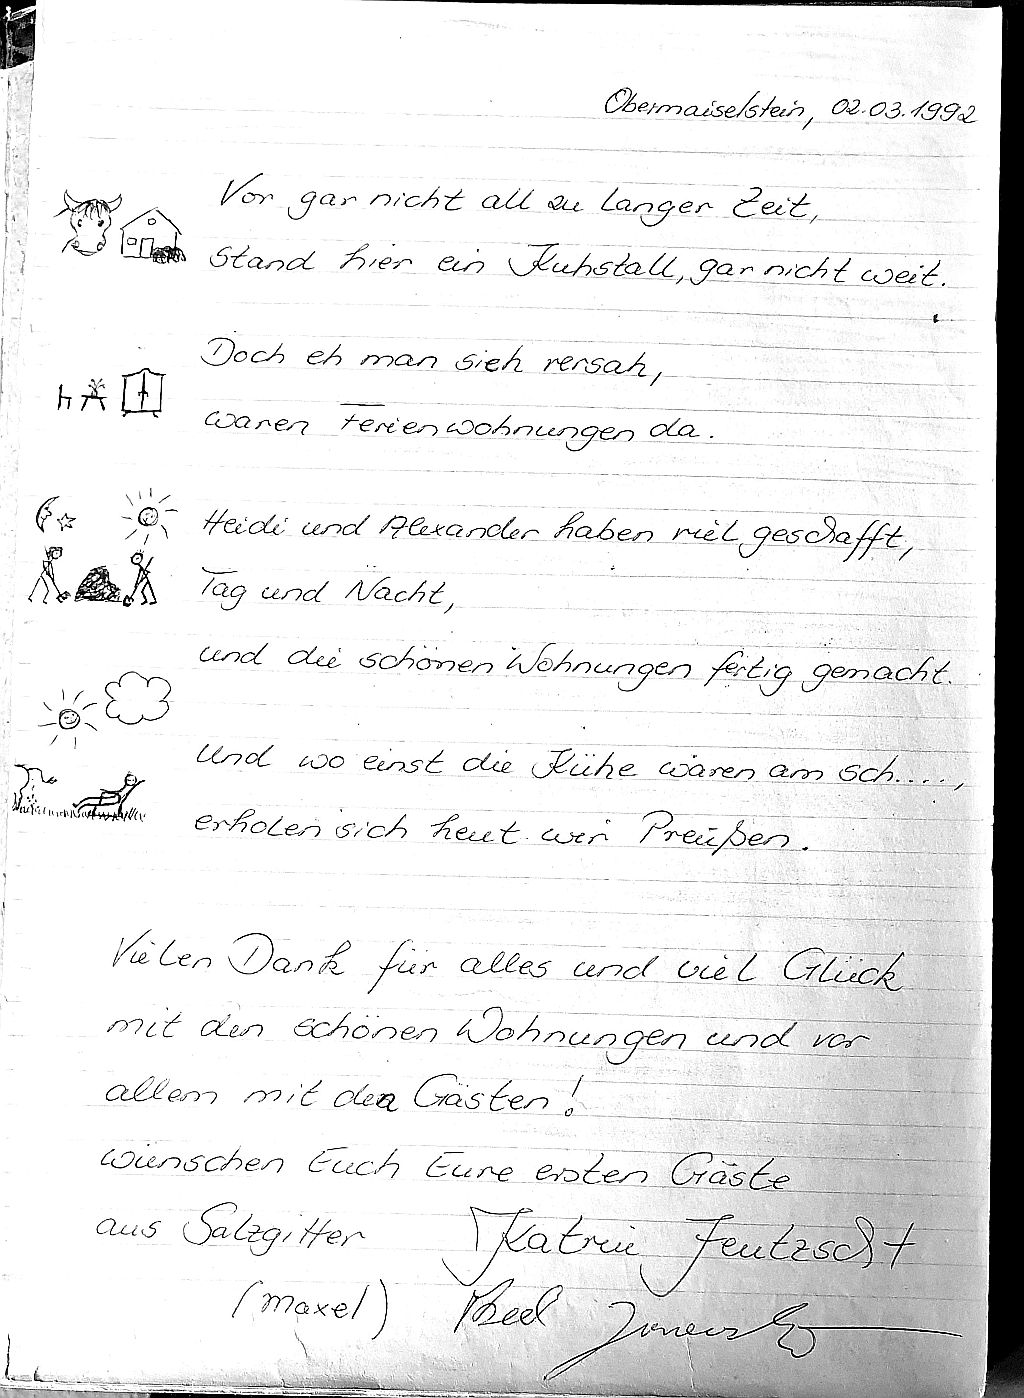 Obermaiselstein, 02.03.1992
Vor gar nicht all zu langer Zeit,
stand hier ein Kuhstall, gar nicht weit.
Doch eh man sich versah,
waren Ferienwohnungen da.
Heidi und Alexander haben viel geschafft,
Tag und Nacht,
und die schönen Wohnungen fertig gemacht.
Und wo einst die Kühe waren am sch....,
erholen sich heut wir Preußen.
Vielen Dank für alles und viel Glück
mit den schönen Wohnungen und vor
allem mit den Gästen!
wünschen Euch Eure ersten Gäste
aus Salzgitter Katrin
(Maxel)